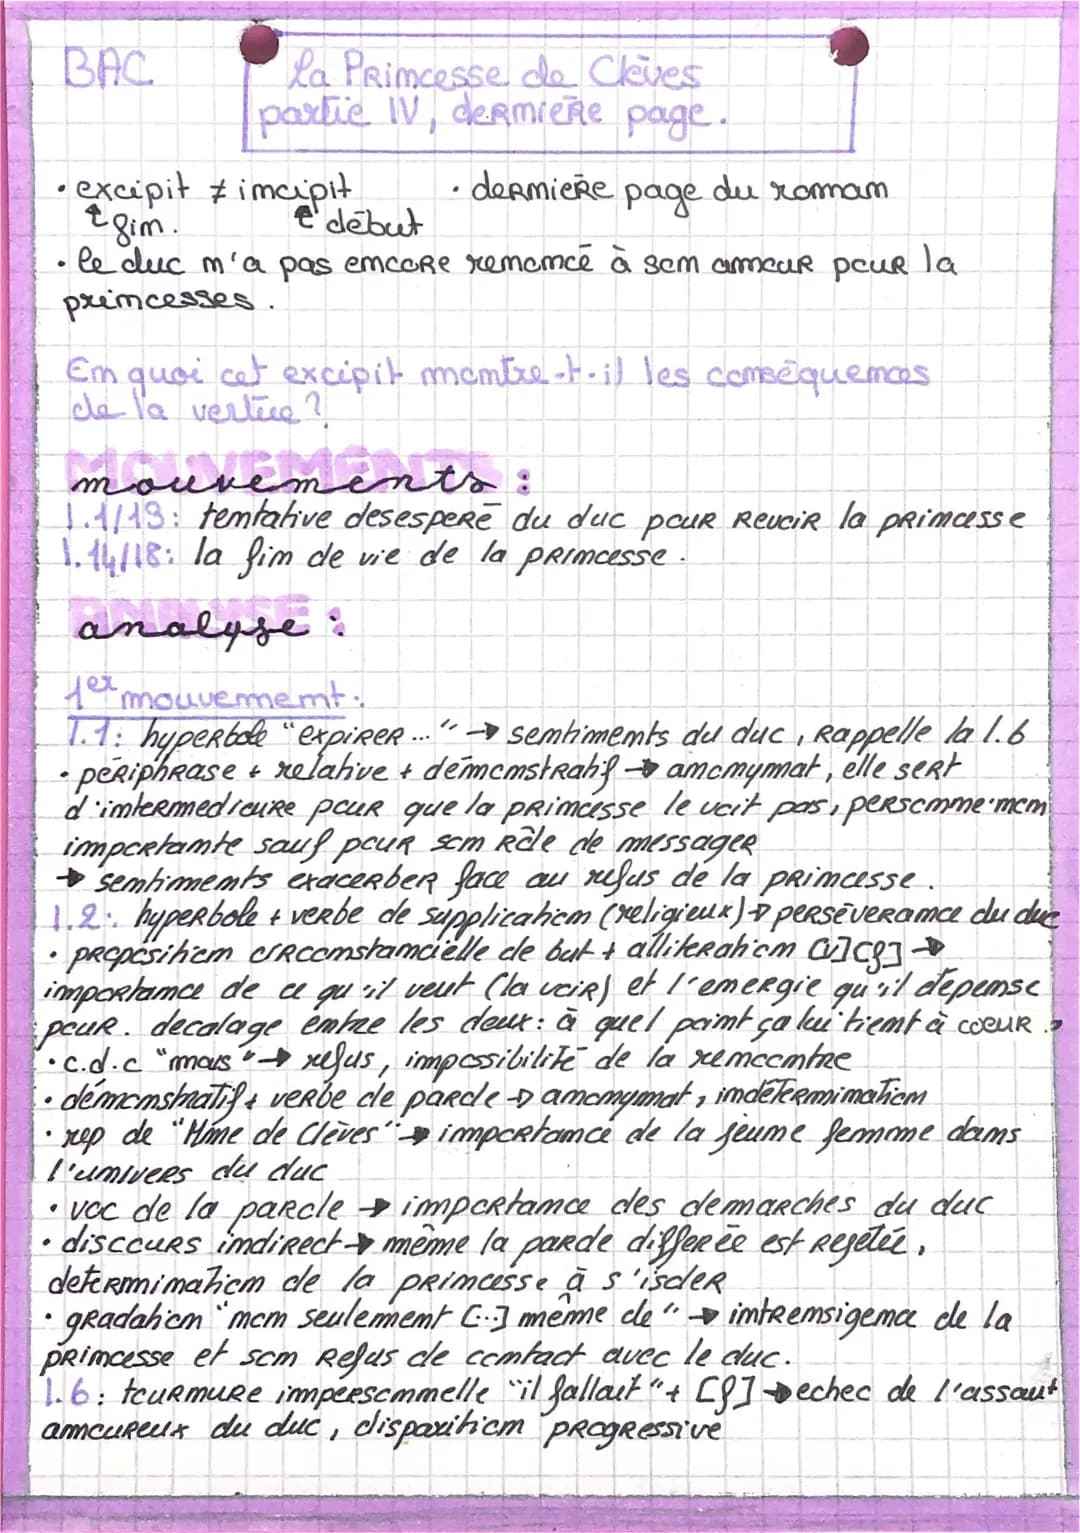 BAC
La Princesse de Clèves
partie IV, dernière page.
• excipit ≠ incipit
• dernière page du roman
fin.
début
• le duc n'a pas encore renoncé à son amour pour la
princesses.
En quoi cet excipit montre-t-il les conséquences
de la vertue ?
mouvements :
l.1/13: tentative desesperé du duc pour revoir la princesse
l.14/18: la fin de vie de la princesse.
analyse :
1er mouvement:
l.1: hyperbole "expirer..." → sentiments du duc, rappelle la l.6
• périphrase + relative + démonstratif → anonymat, elle sert
d'intermediaire pour que la princesse le voit pas, personne non
importante sauf pour son rôle de messager
→ sentiments exacerber face au refus de la princesse.
l.2: hyperbole + verbe de supplication (religieux) → perséverance du duc
• proposition circonstancielle de but + alliteration [v][f] →
importance de ce qu'il veut (la voir) et l'energie qu'il dépense
pour. decalage entre les deux: à quel point ça lui tient à coeur
• c.d.c "mais" → refus, impossibilité de la rencontre
• démonstratif + verbe de parole → anonymat, indétermination
• rep de "Mme de Clèves" → importance de la jeune femme dans
l'univers du duc
• voc de la parole → importance des demarches du duc
• discours indirect → même la parole differée est rejetée,
determination de la princesse à s'isoler
• gradation "non seulement [...] même de" → intrensigence de la
princesse et son refus de contact avec le duc.
l.6: tournure impersonnelle "il fallait" + [f] → echec de l'assaut
amoureux du duc, disparition progressive